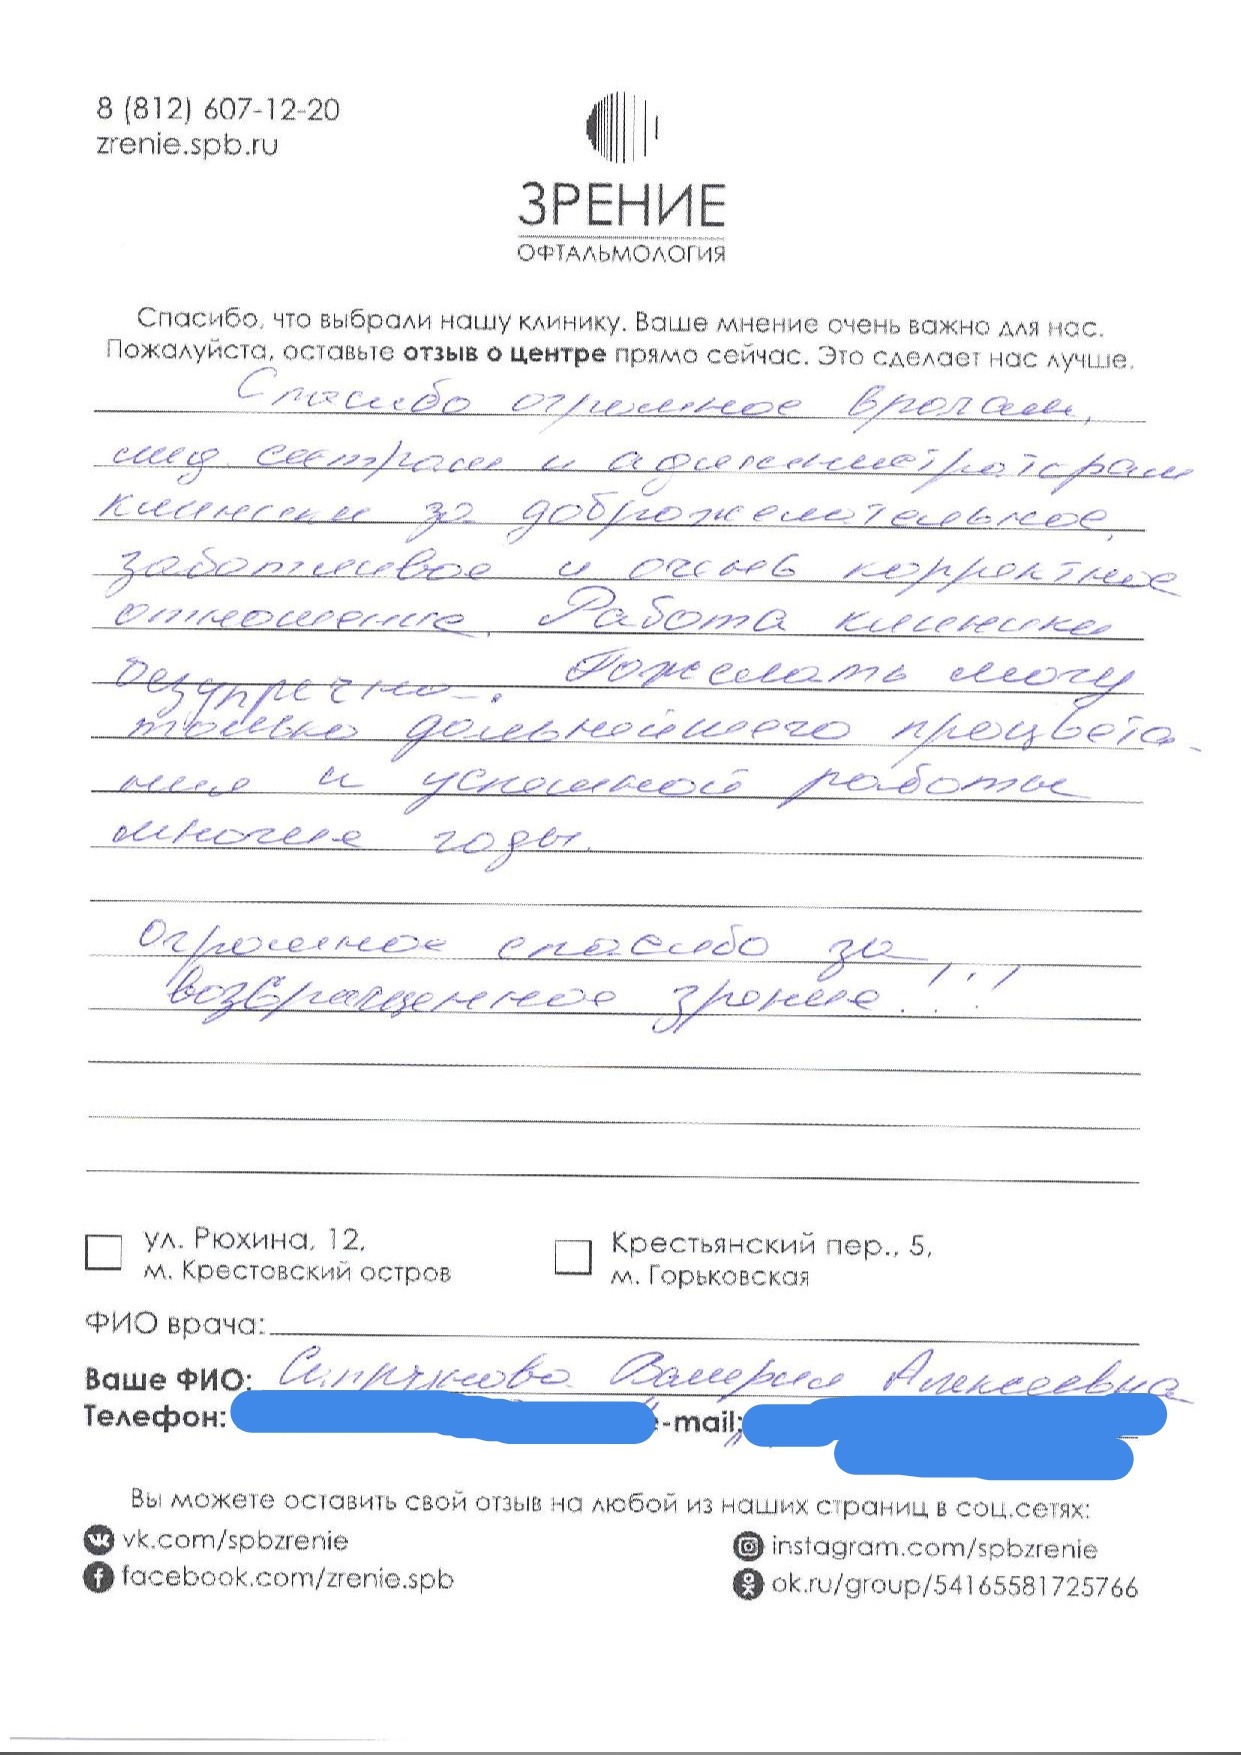 8 (812) 607-12-20
zrenie.spb.ru
ЗРЕНИЕ
ОФТАЛЬМОЛОГИЯ
Спасибо, что выбрали нашу клинику. Ваше мнение очень важно для нас.
Пожалуйста, оставьте отзыв о центре прямо сейчас. Это сделает нас лучше.
Спасибо огромное врачам,
мед. сестрам и администраторам
клиники за доброжелательное,
заботливое и очень корректное
отношение. Работа клиники
безупречна. Пожелать могу
только дальнейшего процвета-
ния и успешной работы
многие годы.
Огромное спасибо за
возвращенное зрение!!!
ул. Рюхина, 12,
м. Крестовский остров
Крестьянский пер., 5,
м. Горьковская
ФИО врача:
Ваше ФИО: Валерия Алексеевна
Телефон: e-mail:
Вы можете оставить свой отзыв на любой из наших страниц в соц.сетях:
vk.com/spbzrenie
facebook.com/zrenie.spb
instagram.com/spbzrenie
ok.ru/group/54165581725766